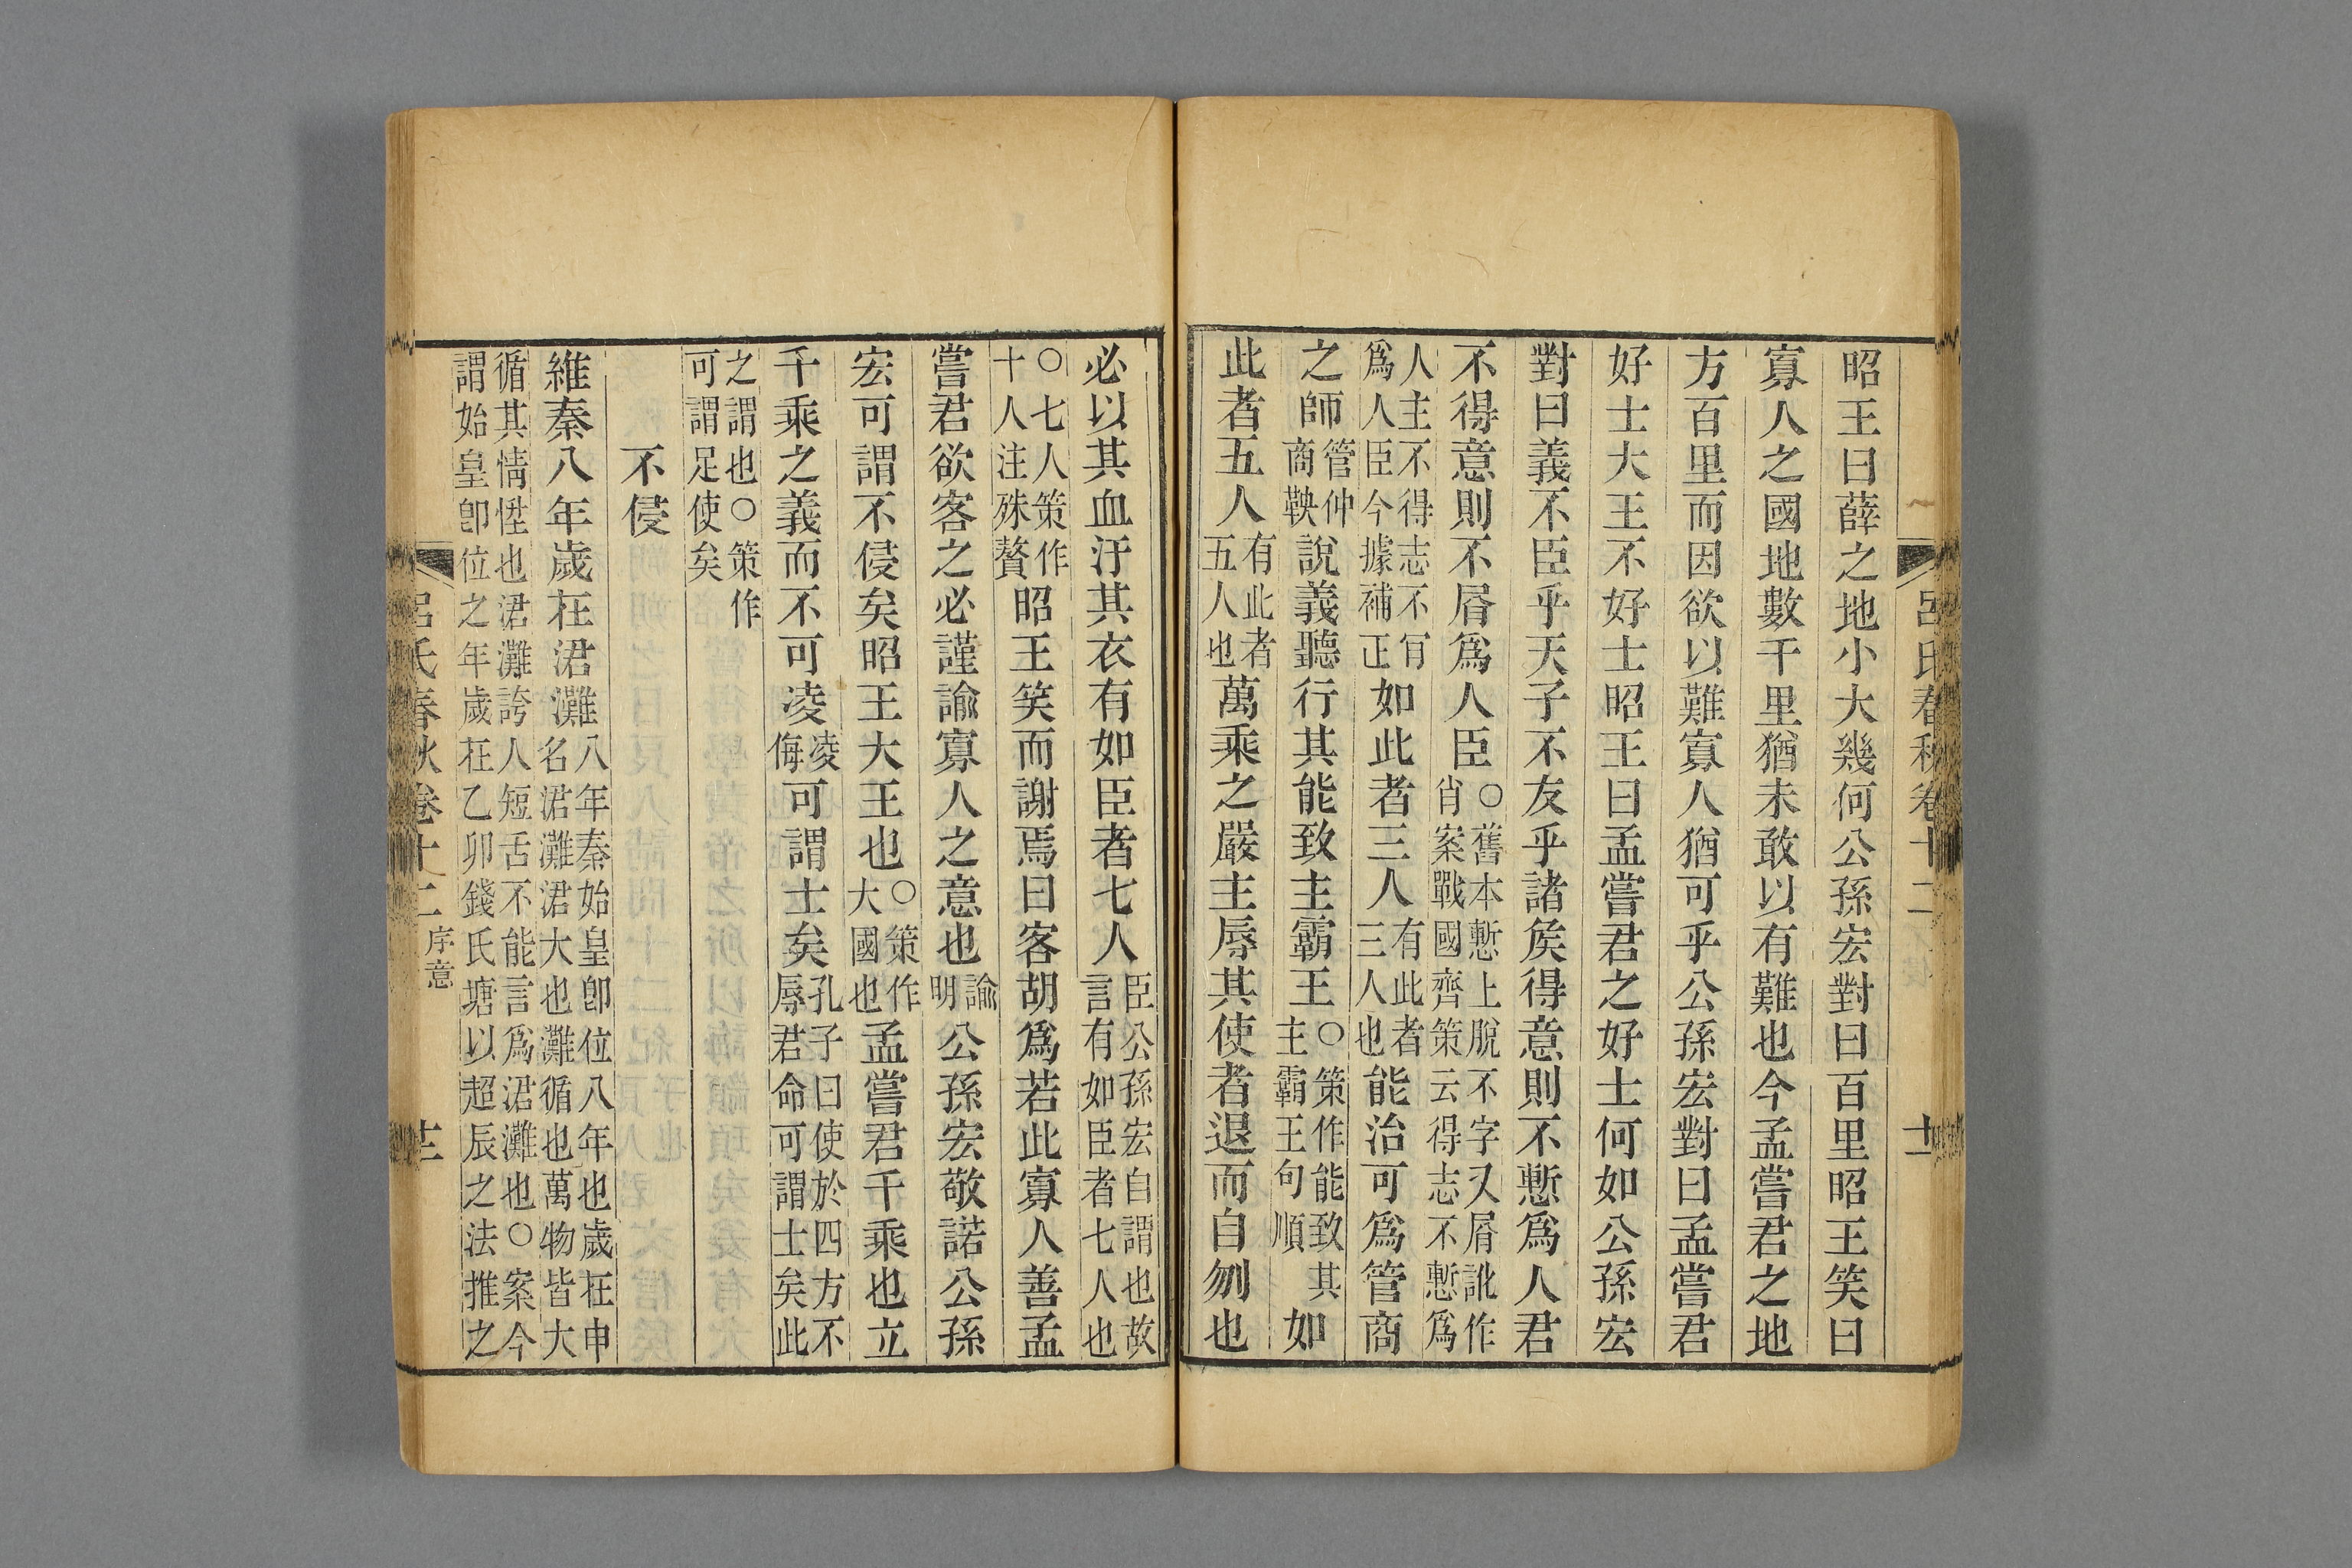 呂氏春秋卷十二
十一
昭王曰薛之地小大幾何公孫宏對曰百里昭王笑曰
寡人之國地數千里猶未敢以有難也今孟嘗君之地
方百里而因欲以難寡人猶可乎公孫宏對曰孟嘗君
好士大王不好士昭王曰孟嘗君之好士何如公孫宏
對曰義不臣乎天子不友乎諸矦得意則不慙爲人君
不得意則不屑爲人臣○舊本慙上脫不字又屑訛作肖案戰國齊策云得志不慙爲
人主不得志不肎爲人臣今據補正如此者三人有此者三人也能治可爲管商
之師管仲商鞅說義聽行其能致主霸王○策作能致其主霸王句順如
此者五人有此者五人也萬乘之嚴主辱其使者退而自刎也
必以其血汙其衣有如臣者七人臣公孫宏自謂也故言有如臣者七人也
○七人策作十人注殊贅昭王笑而謝焉曰客胡爲若此寡人善孟
嘗君欲客之必謹諭寡人之意也諭明公孫宏敬諾公孫
宏可謂不侵矣昭王大王也○策作大國也孟嘗君千乘也立
千乘之義而不可凌凌侮可謂士矣孔子曰使於四方不辱君命可謂士矣此
之謂也○策作可謂足使矣
不侵
維秦八年歲在涒灘八年秦始皇卽位八年也歲在申名涒灘涒大也灘循也萬物皆大
循其情性也涒灘誇人短舌不能言爲涒灘也○案今謂始皇卽位之年歲在乙卯錢氏塘以超辰之法推之
呂氏春秋卷十二
序意
十二